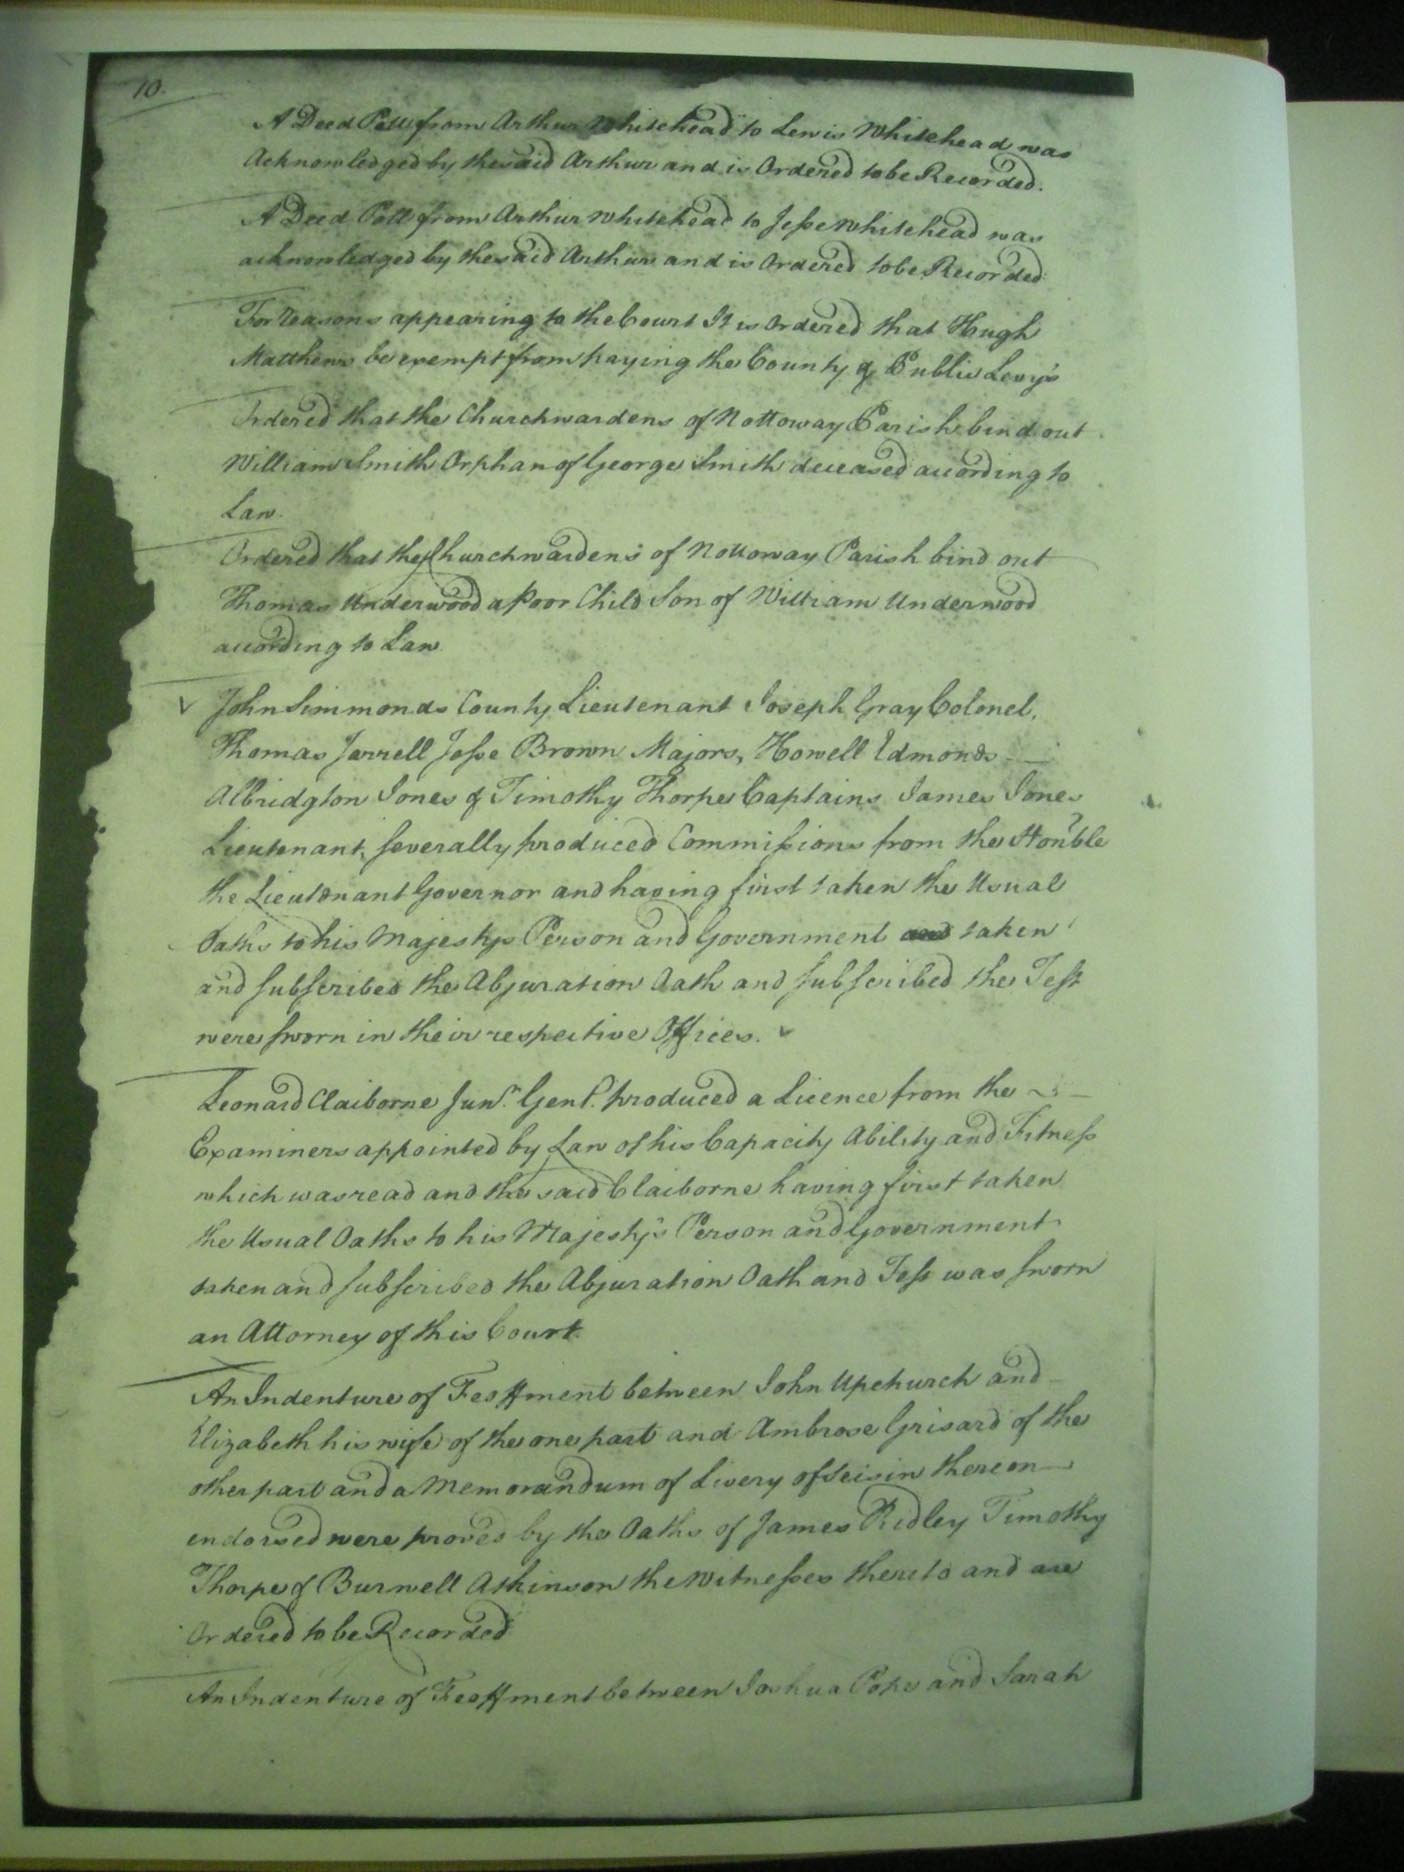 10.
A Deed Poll from Arthur Whitehead to Lewis Whitehead was
Acknowledged by the said Arthur and is Ordered to be Recorded.
A Deed Poll from Arthur Whitehead to Jesse Whitehead was
acknowledged by the said Arthur and is Ordered to be Recorded
For reasons appearing to the Court It is Ordered that Hugh
Matthews be exempt from paying the County & Public Levy's
Ordered that the Churchwardens of Nottoway Parish bind out
William Smith Orphan of George Smith deceased according to
Law.
Ordered that the Churchwardens of Nottoway Parish bind out
Thomas Underwood a Poor Child Son of William Underwood
according to Law
John Simmonds County Lieutenant Joseph Gray Colonel,
Thomas Jarrell Jesse Brown Majors, Howell Edmonds
Albridgton Jones & Timothy Thorpe Captains James Jones
Lieutenant, severally produced Commissions from the Honble
the Lieutenant Governor and having first taken the Usual
Oaths to his Majestys Person and Government and taken
and subscribed the Abjuration Oath and subscribed the Test
were sworn in their respective Offices.
Leonard Claiborne Junr. Gent. produced a Licence from the
Examiners appointed by Law of his Capacity Ability and Fitness
which was read and the said Claiborne having first taken
the Usual Oaths to his Majesty's Person and Government
taken and subscribed the Abjuration Oath and Test was sworn
an Attorney of this Court
An Indenture of Feoffment between John Upchurch and
Elizabeth his wife of the one part and Ambrose Grisard of the
other part and a Memorandum of Livery of Seisin thereon
endorsed were proved by the Oaths of James Ridley Timothy
Thorpe & Burwell Atkinson the Witnesses thereto and are
Ordered to be Recorded
An Indenture of Feoffment between Joshua Pope and Sarah